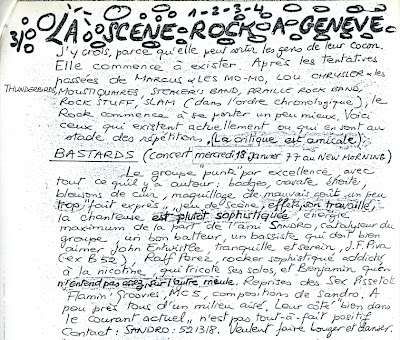 1-2-3-4
3/0 LA SCENE ROCK A GENEVE
J'y crois, parce qu'elle peut sortir les gens de leur cocon.
Elle commence à exister. Après les tentatives
passées de MARCUS & LES MO-MO, LOU CHRYSLER & les
THUNDERBIRDS, MOUSTIQUAIRES, STEALER'S BAND, PRAILLE ROCK BAND,
ROCK STUFF, SLAM (dans l'ordre chronologique), le
Rock commence à se porter un peu mieux. Voici
ceux qui existent actuellement ou qui en sont au
stade des répétitions. (La critique est amicale)
BASTARDS (concert mercredi 18 janvier 77 au NEW MORNING)
Le groupe "punk" par excellence, avec
tout ce qu'il y a autour: badges, cravate étroite,
blousons de cuir, maquillage de mauvais goût un peu
trop "fait exprès", jeu de scène, effets, son travaillé,
la chanteuse est plutôt sophistiquée, énergie
maximum de la part de l'ami SANDRO, catalyseur du
groupe, un bon batteur, un bassiste qui doit bien
aimer John Entwistle, tranquille et serein, J.F. Piva
(ex B 52), Ralf Perez, rocker sophistiqué addicté
à la nicotine, qui tricote ses solos, et Benjamin, qu'on
n'entend pas assez, sur l'autre meule. Reprises des Sex Pistols
Flamin' Groovies, MC5, compositions de Sandro. A
peu près tous d'un milieu aisé. Leur côté "bien dans
le courant actuel" n'est pas tout-à-fait positif
Contact: SANDRO: 521318. Veulent faire bouger et danser.